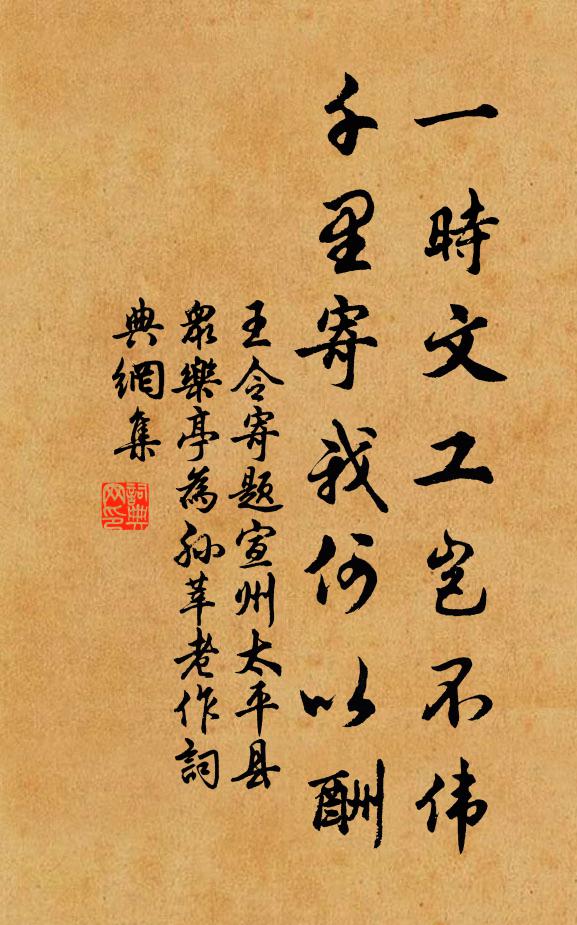 一時文工岂不伟
千里寄我何以酬
王令寄题宣州太平县
眾樂亭為孙莘老作詞
典網集
詞典网印